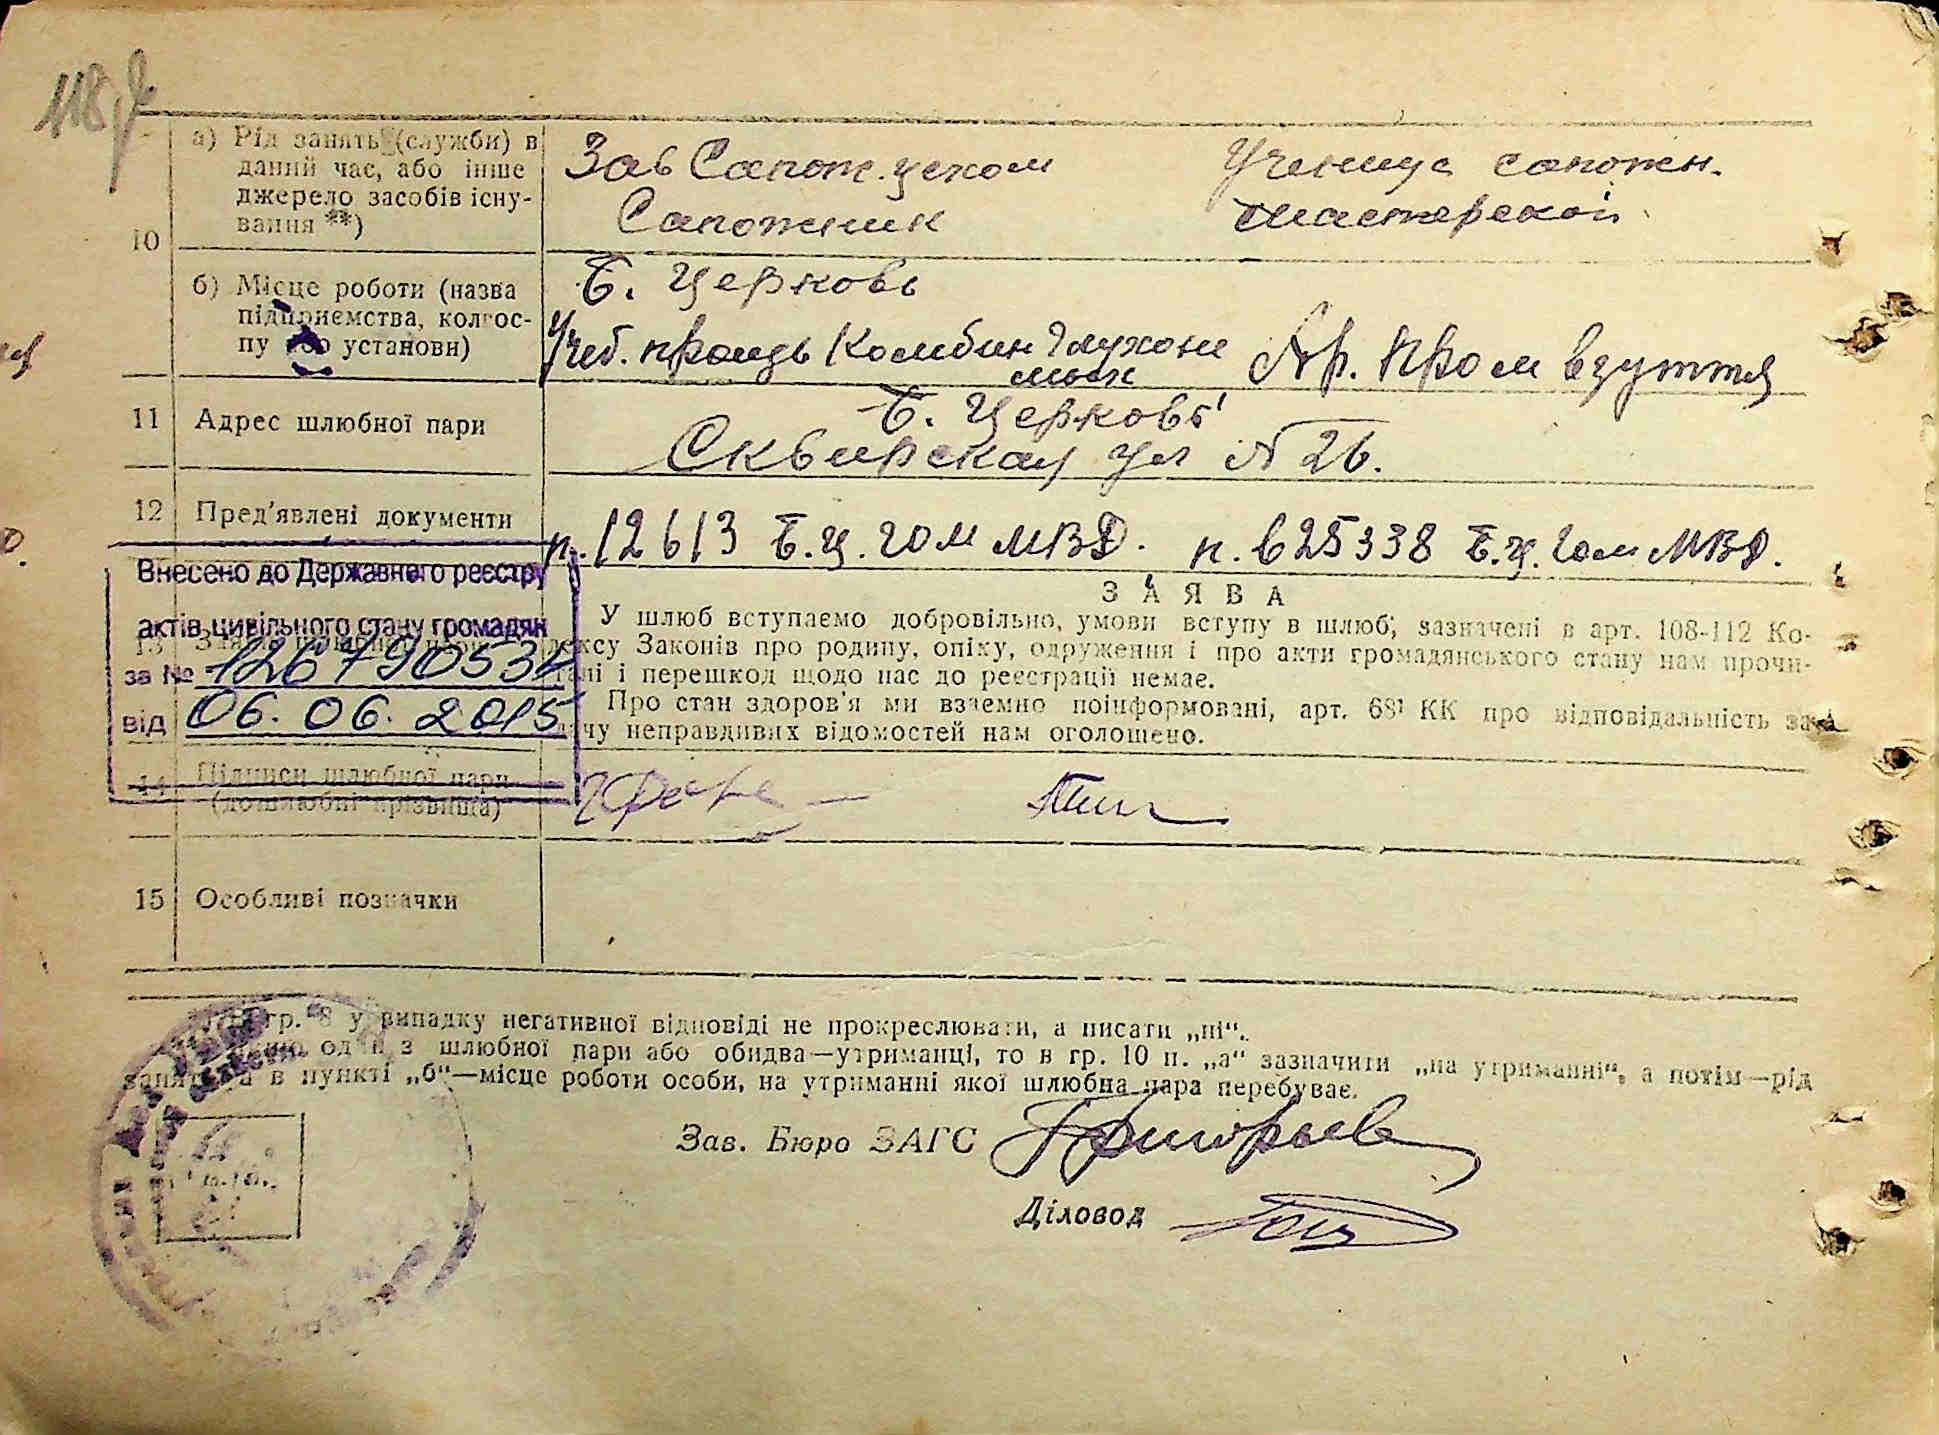 118
10
а) Рід занять (служби) в
даний час, або інше
джерело засобів існу-
вання **)
Зав Сапож. цехом
Сапожник
Ученица сапожн.
мастерской
б) Місце роботи (назва
підприємства, колгос-
пу або установи)
Б. Церковь
Учеб. произв Комбин Глухоне
мых
Ар. Пром взуття
11 Адрес шлюбної пари
Б. Церковь
Сквирская ул № 26.
12 Пред'явлені документи
п. 12613 Б.ц. гом МВД. п. 625338 Б.ц. гом МВД.
Внесено до Державного реєстру
актів цивільного стану громадян
за №
від 06. 06. 2015
13
ЗАЯВА
У шлюб вступаємо добровільно, умови вступу в шлюб, зазначені в арт. 108-112 Ко-
дексу Законів про родину, опіку, одруження і про акти громадянського стану нам прочи-
тані і перешкод щодо нас до реєстрації немає.
Про стан здоров'я ми взаємно поінформовані, арт. 68¹ КК про відповідальність за
дачу неправдивих відомостей нам оголошено.
14 Підписи шлюбної пари
(дошлюбні прізвища)
15 Особливі позначки
гр. 8 у випадку негативної відповіді не прокреслювати, а писати „ні“.
один з шлюбної пари або обидва—утриманці, то в гр. 10 п. „а“ зазначити „на утриманні“, а потім—рід
занять, а в пункті „б“—місце роботи особи, на утриманні якої шлюбна пара перебуває.
Зав. Бюро ЗАГС Григорьев
Діловод